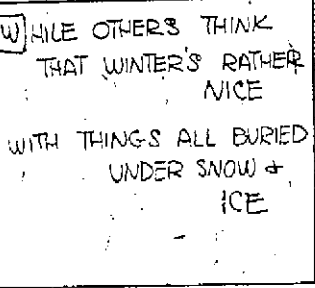 WHILE OTHERS THINK
THAT WINTER'S RATHER
NICE
WITH THINGS ALL BURIED
UNDER SNOW &
ICE